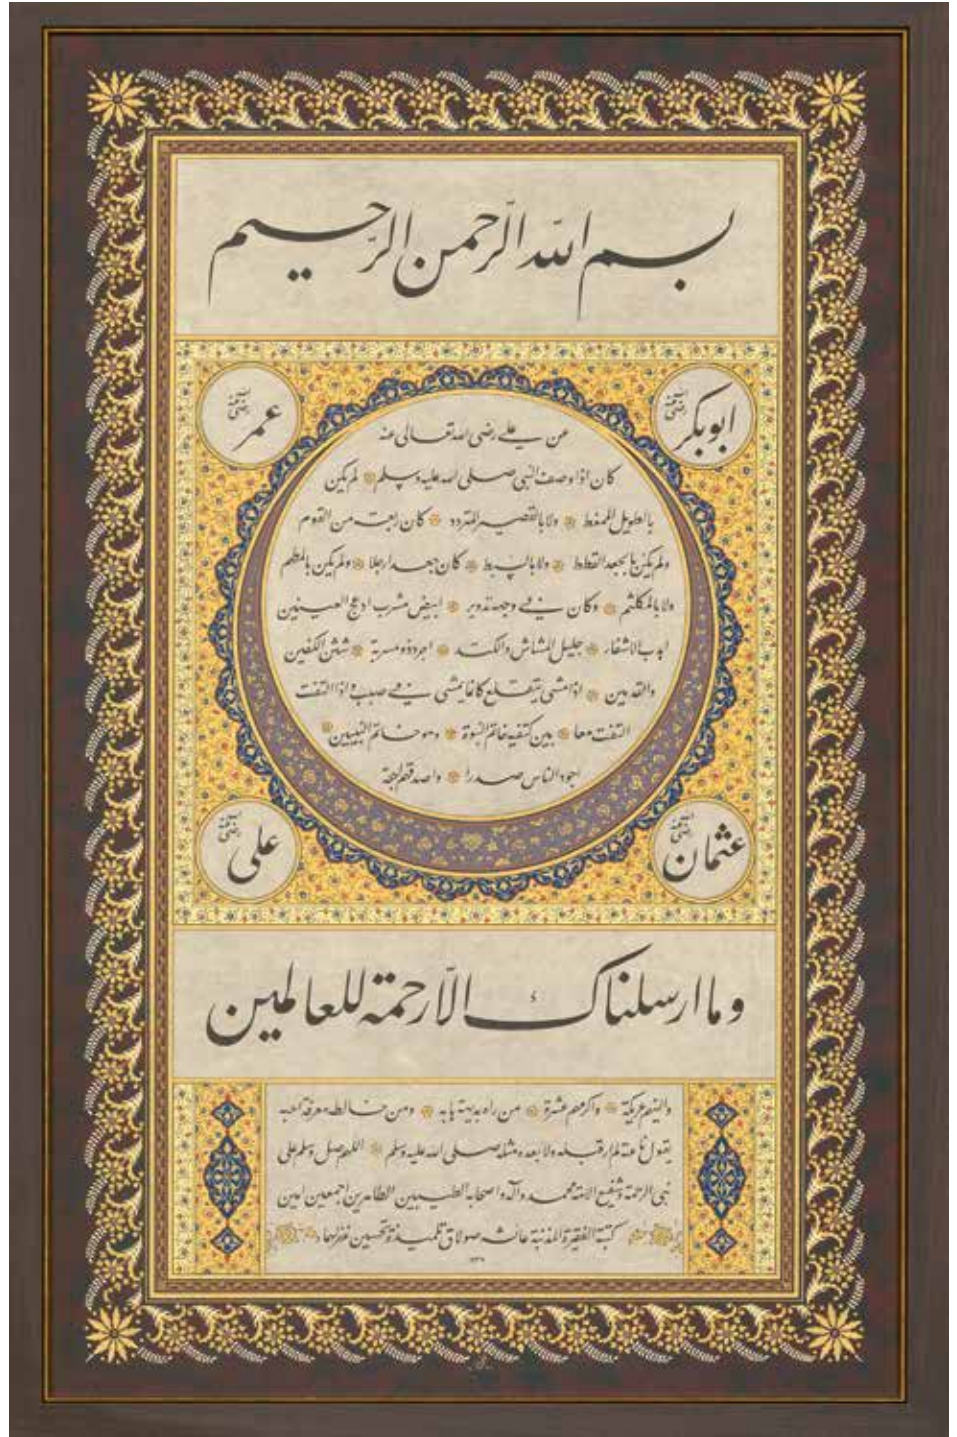 بسم الله الرّحمن الرّحيم
ابوبكر رضى الله عنه
عمر رضى الله عنه
عن على رضى الله تعالى عنه
كان اذا وصف النبى صلى الله عليه وسلم لم يكن
بالطويل الممغط ولا بالقصير المتردد كان ربعة من القوم
ولم يكن بالجعد القطط ولا بالسبط كان جعدا رجلا ولم يكن بالمطهم
ولا بالمكلثم وكان فى وجهه تدوير ابيض مشرب ادعج العينين
اهدب الاشفار جليل المشاش والكتد اجرد ذو مسربة شثن الكفين
والقدمين اذا مشى يتقلع كانما يمشى فى صبب واذا التفت
التفت معا بين كتفيه خاتم النبوة وهو خاتم النبيين
اجود الناس صدرا واصدقهم لهجة
عثمان رضى الله عنه
على رضى الله عنه
وما ارسلناك الّا رحمة للعالمين
والينهم عريكة واكرمهم عشرة من راه بديهة هابه ومن خالطه معرفة احبه
يقول ناعته لم ار قبله ولا بعده مثله صلى الله عليه وسلم اللهم صل وسلم على
نبى الرحمة وشفيع الامة محمد وآله واصحابه الطيبين الطاهرين اجمعين امين
كتبة الفقيرة المذنبة عائشه صولاق تلميذة تحسين غفر لها